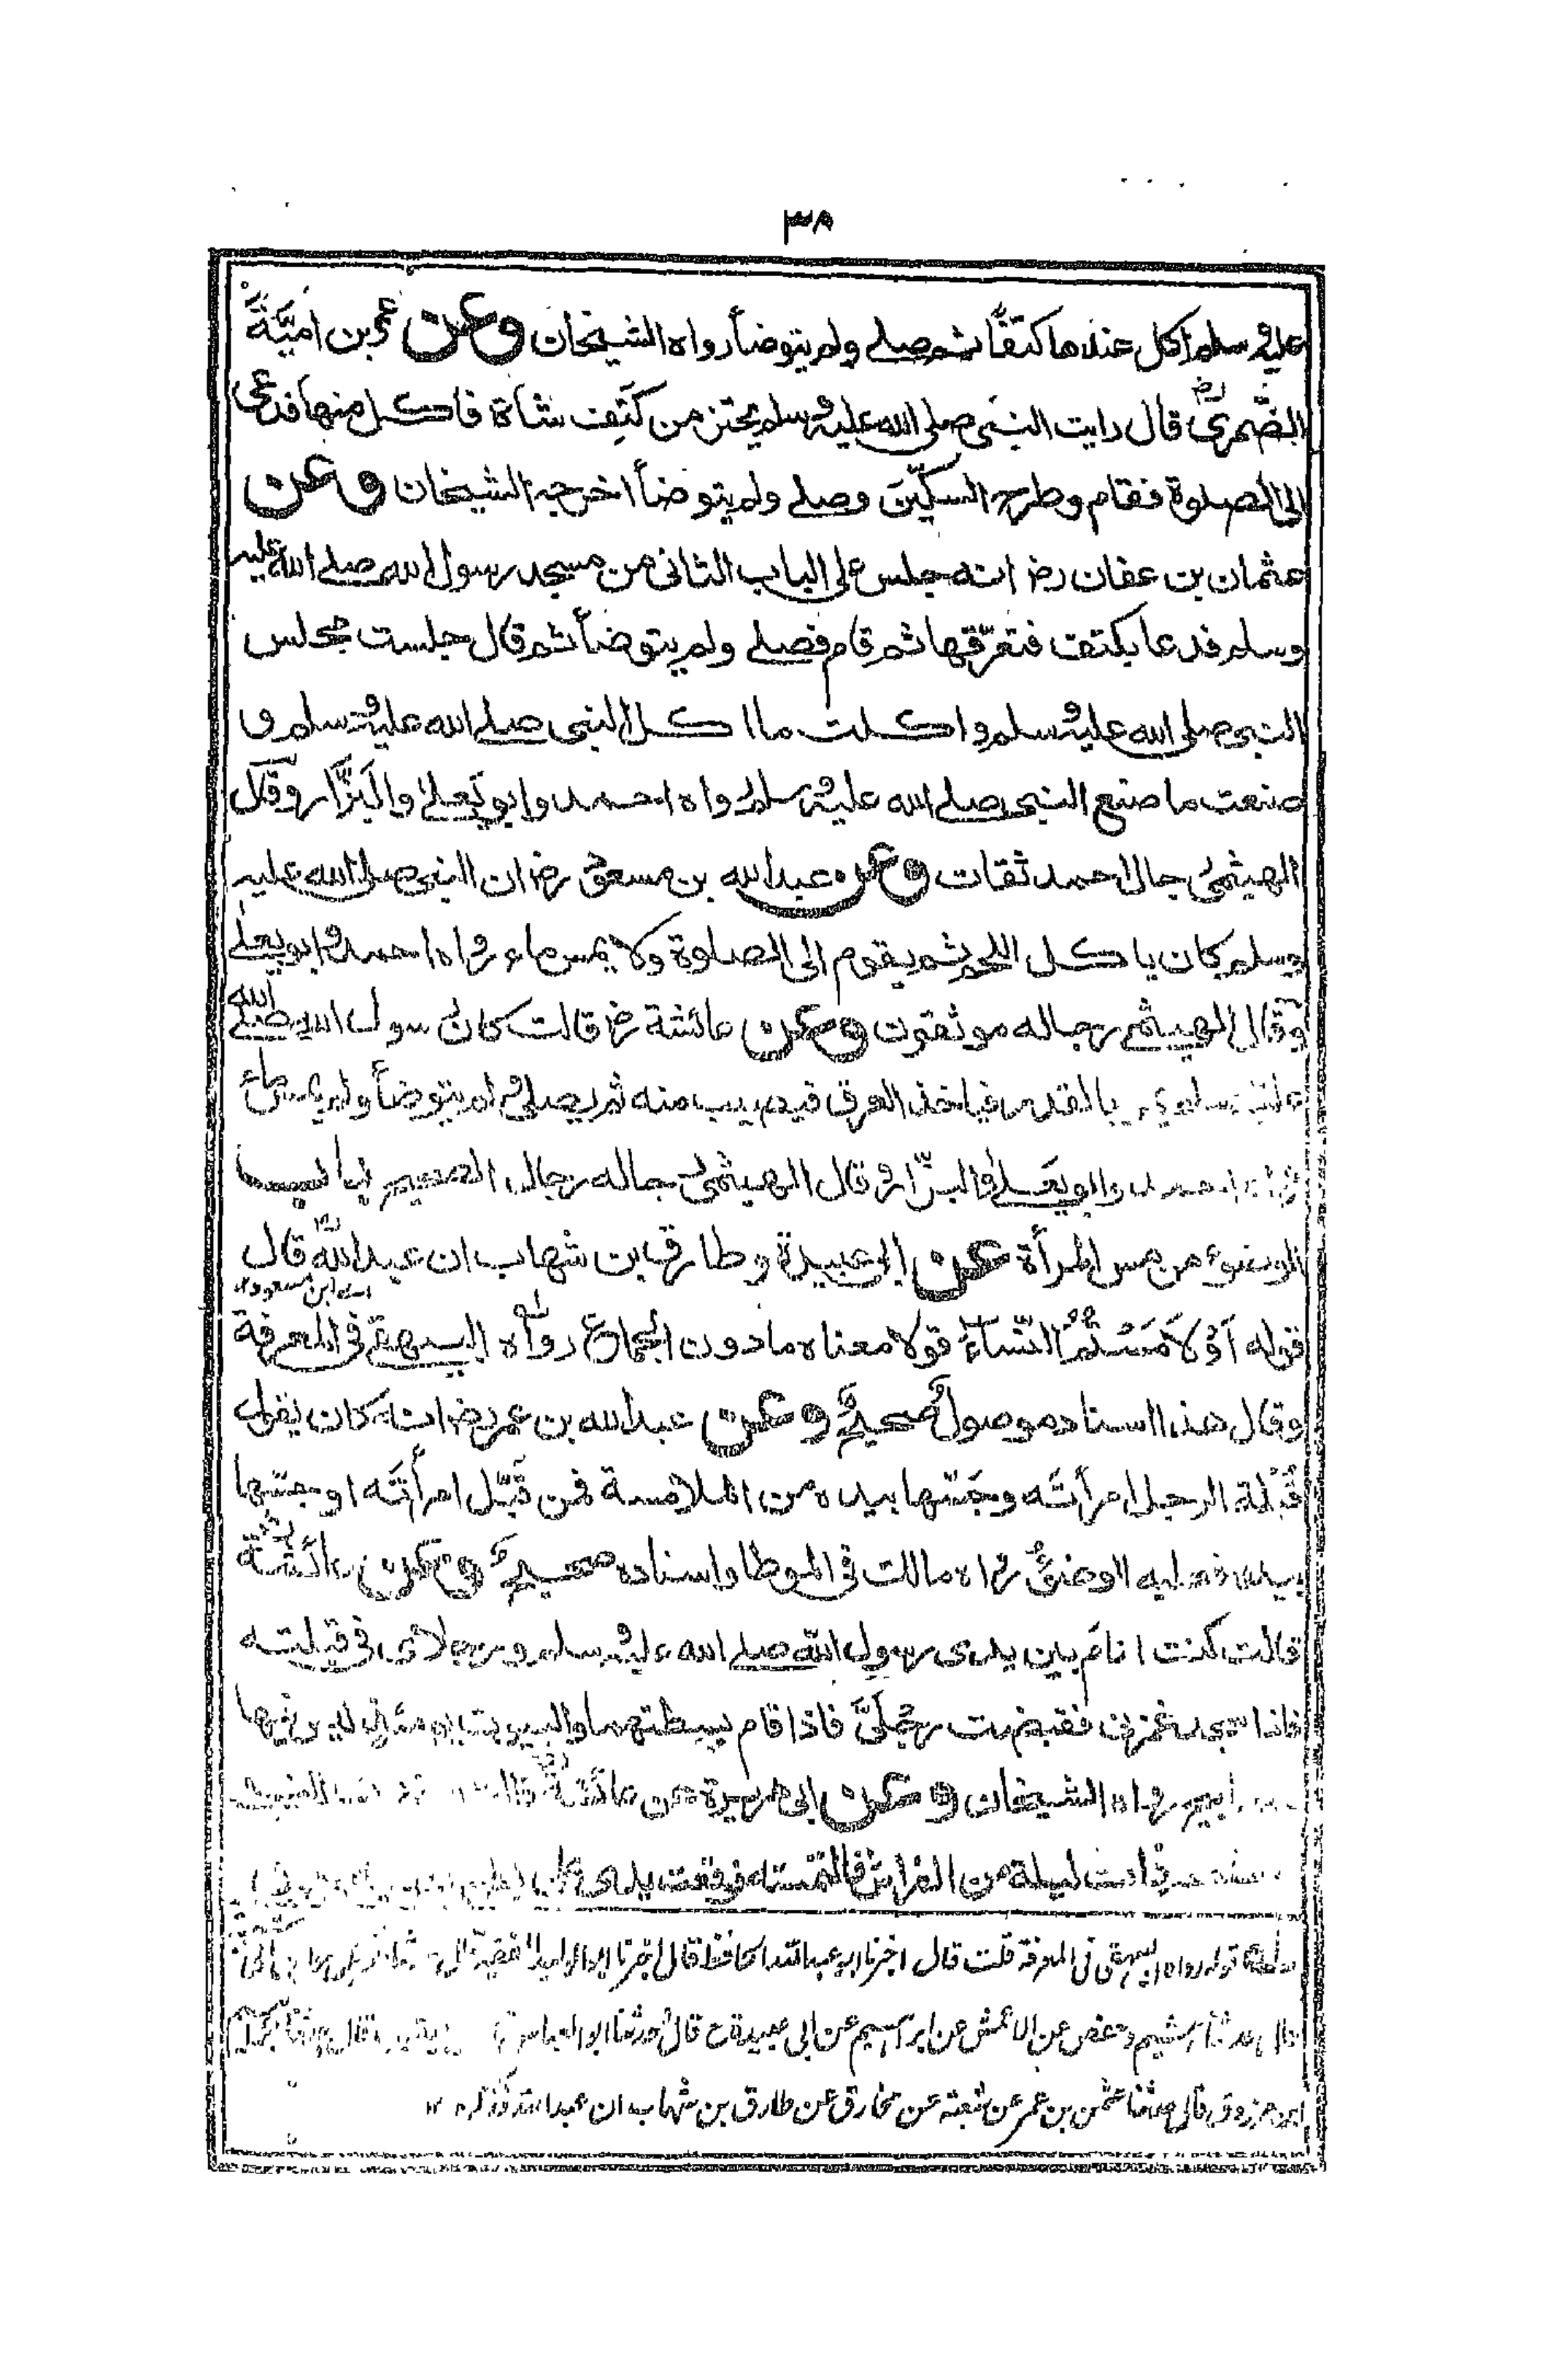 ٣٨
عليه وسلم اكل عندها كتفًا ثم صلے ولم يتوضأ رواه الشيخان وعن عمرو بن اميّةَ
الضَّمريّ رض قال رايت النبى صلى الله عليه وسلم يحتز من كَتِف شاة فاكل منها فدعى
الى الصلوة فقام وطرح السكّين وصلے ولم يتوضأ اخرجه الشيخان وعن
عثمان بن عفان رض انه جلس على الباب الثانى من مسجد رسول الله صلے الله عليه
وسلم فدعا بكتف فتعرّقها ثم قام فصلے ولم يتوضأ ثم قال جلست مجلس
النبى صلى الله عليه وسلم واكلت ما اكل النبى صلے الله عليه وسلم و
صنعت ما صنع النبى صلے الله عليه وسلم رواه احمد وابو يَعلےٰ والبَزّار وقال
الهيثمى رجال احمد ثقات وعن عبد الله بن مسعود رض ان النبى صلى الله عليه
وسلم كان ياكل اللحم ثم يقوم الى الصلوة ولا يمس ماء رواه احمد وابو يعلےٰ
وقال الهيثمے رجاله موثقون وعن عائشة رض قالت كان رسول الله صلے الله
عليه وسلم يمر بالقدر فياخذ العرق فيصيب منه ثم يصلى ولم يتوضأ ولم يمس ماء
رواه احمد وابو يَعلےٰ والبزّار وقال الهيثمى رجاله رجال الصحيح باب
الوضوء من مس المرأة عن ابى عبيدة وطارق بن شهاب ان عبد الله رض قال
اے ابن مسعود
قوله اَوْ لَامَسْتُمُ النِّسَاءَ قولا معناه ما دون الجماع رواه البيهقے فى المعرفة
وقال هذا اسناد موصول صحيح وعن عبد الله بن عمر رض انه كان يقول
قُبْلة الرجل امرأتَه وجَسّها بيده من الملامسة فمن قَبّل امرأتَه او جسّها
بيده فعليه الوضوءُ رواه مالك فى الموطا واسناده صحيح وعن عائشة رض
قالت كنت انام بين يدى رسول الله صلے الله عليه وسلم ورجلاى فى قبلته
فاذا سجد غمزنى فقبضت رجلَىَّ فاذا قام بسطتهما والبيوت يومئذٍ ليس فيها
مصابيح رواه الشيخان وعن ابى هريرة عن عائشة رض قالت
ذات ليلة من الفراش فالتمسته فوقعت يدى على بطن
قوله رواه البيهقى فى المعرفة قلت قال اخبرنا ابو عبد الله الحافظ قال اخبرنا ابو الوليد الفقيه قال
قال حدثنا هشيم وحفص عن الاعمش عن ابراهيم عن ابى عبيدة ح قال وحدثنا ابو العباس قال
ابن مرزوق قال حدثنا عثمن بن عمر عن شعبة عن مخارق عن طارق بن شهاب ان عبد الله فذكره ١٢